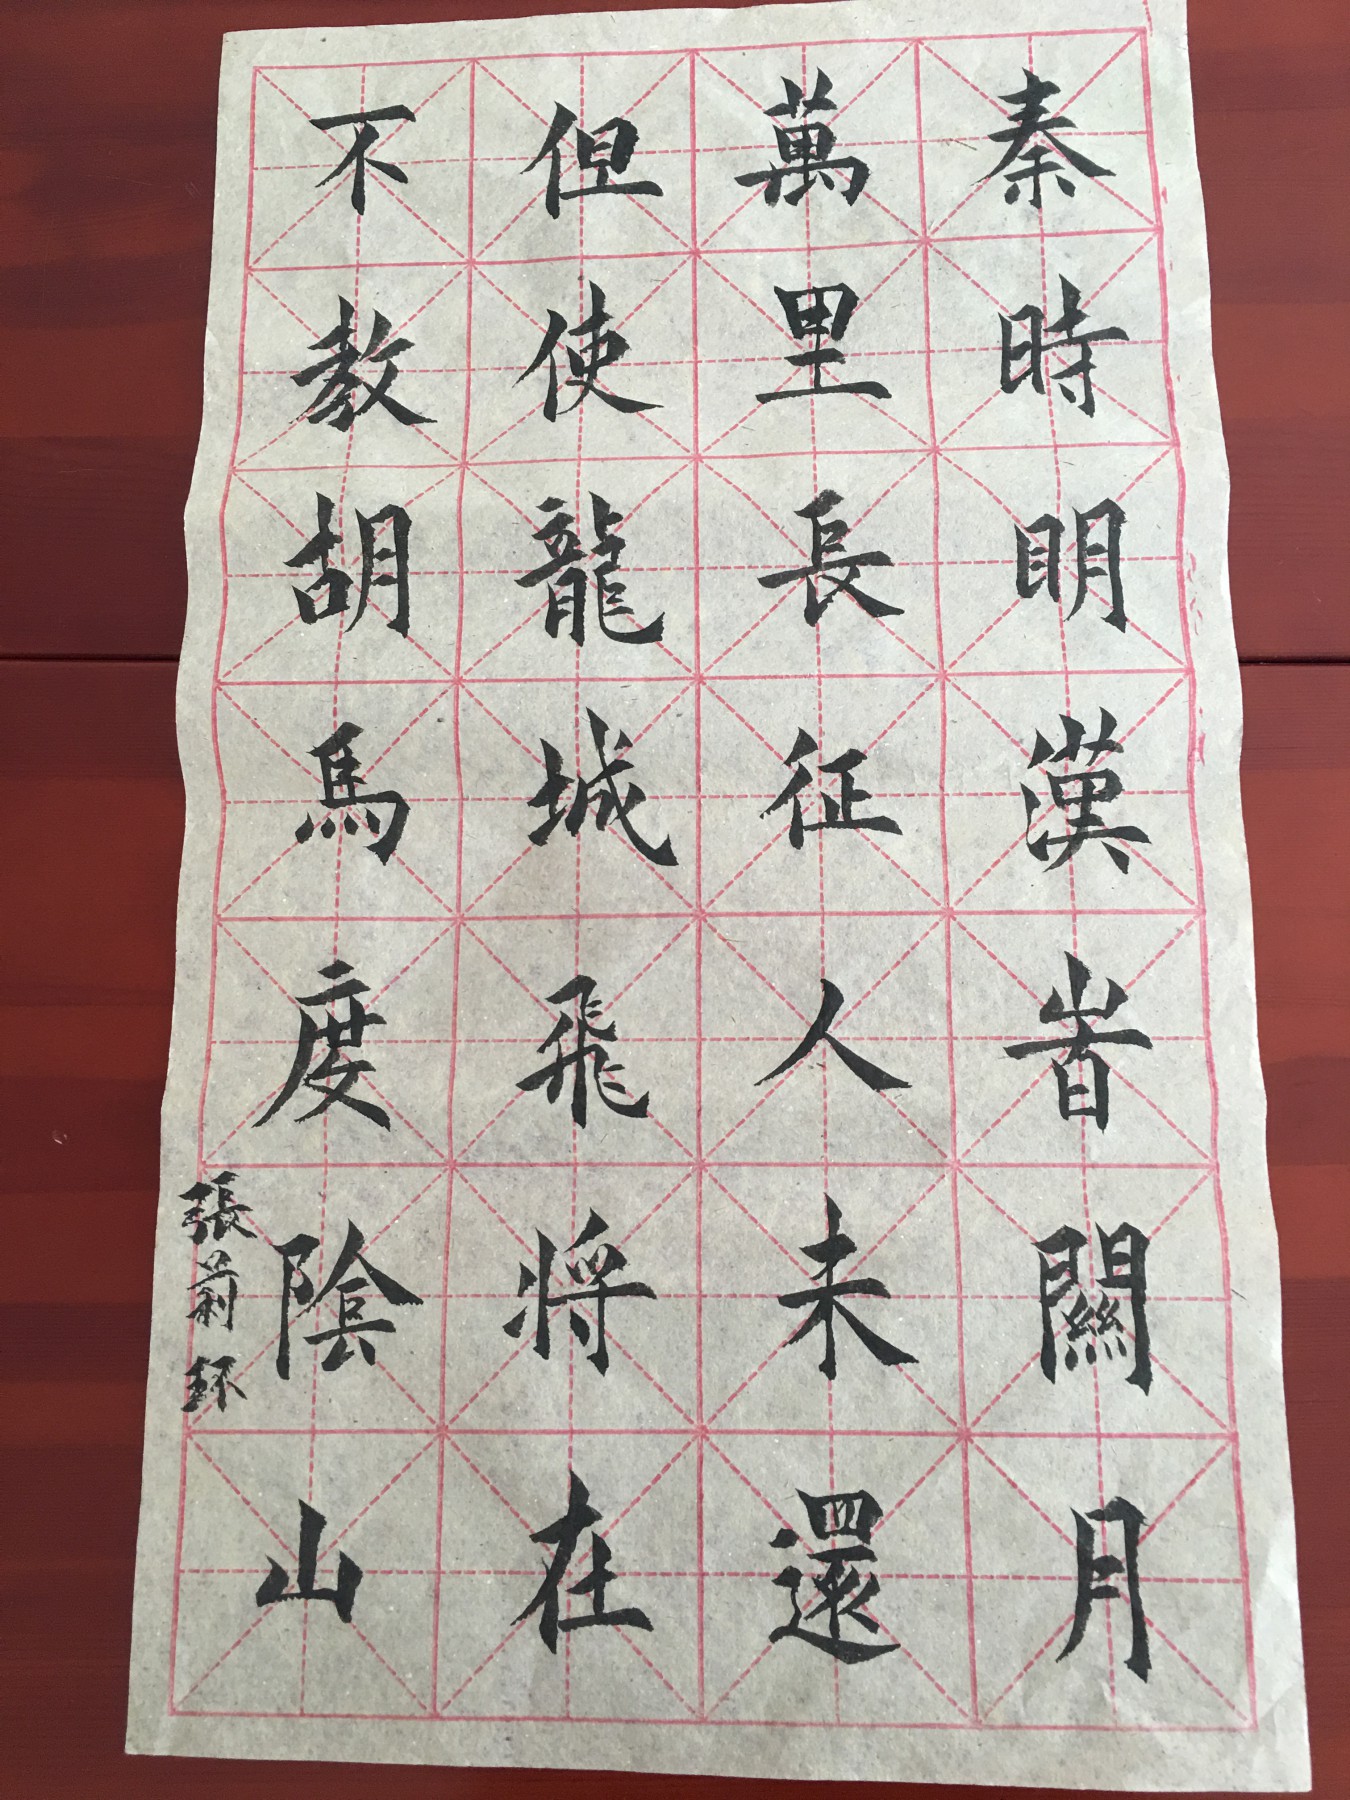 秦時明漢旹關月
萬里長征人未還
但使龍城飛將在
不教胡馬度陰山
張前